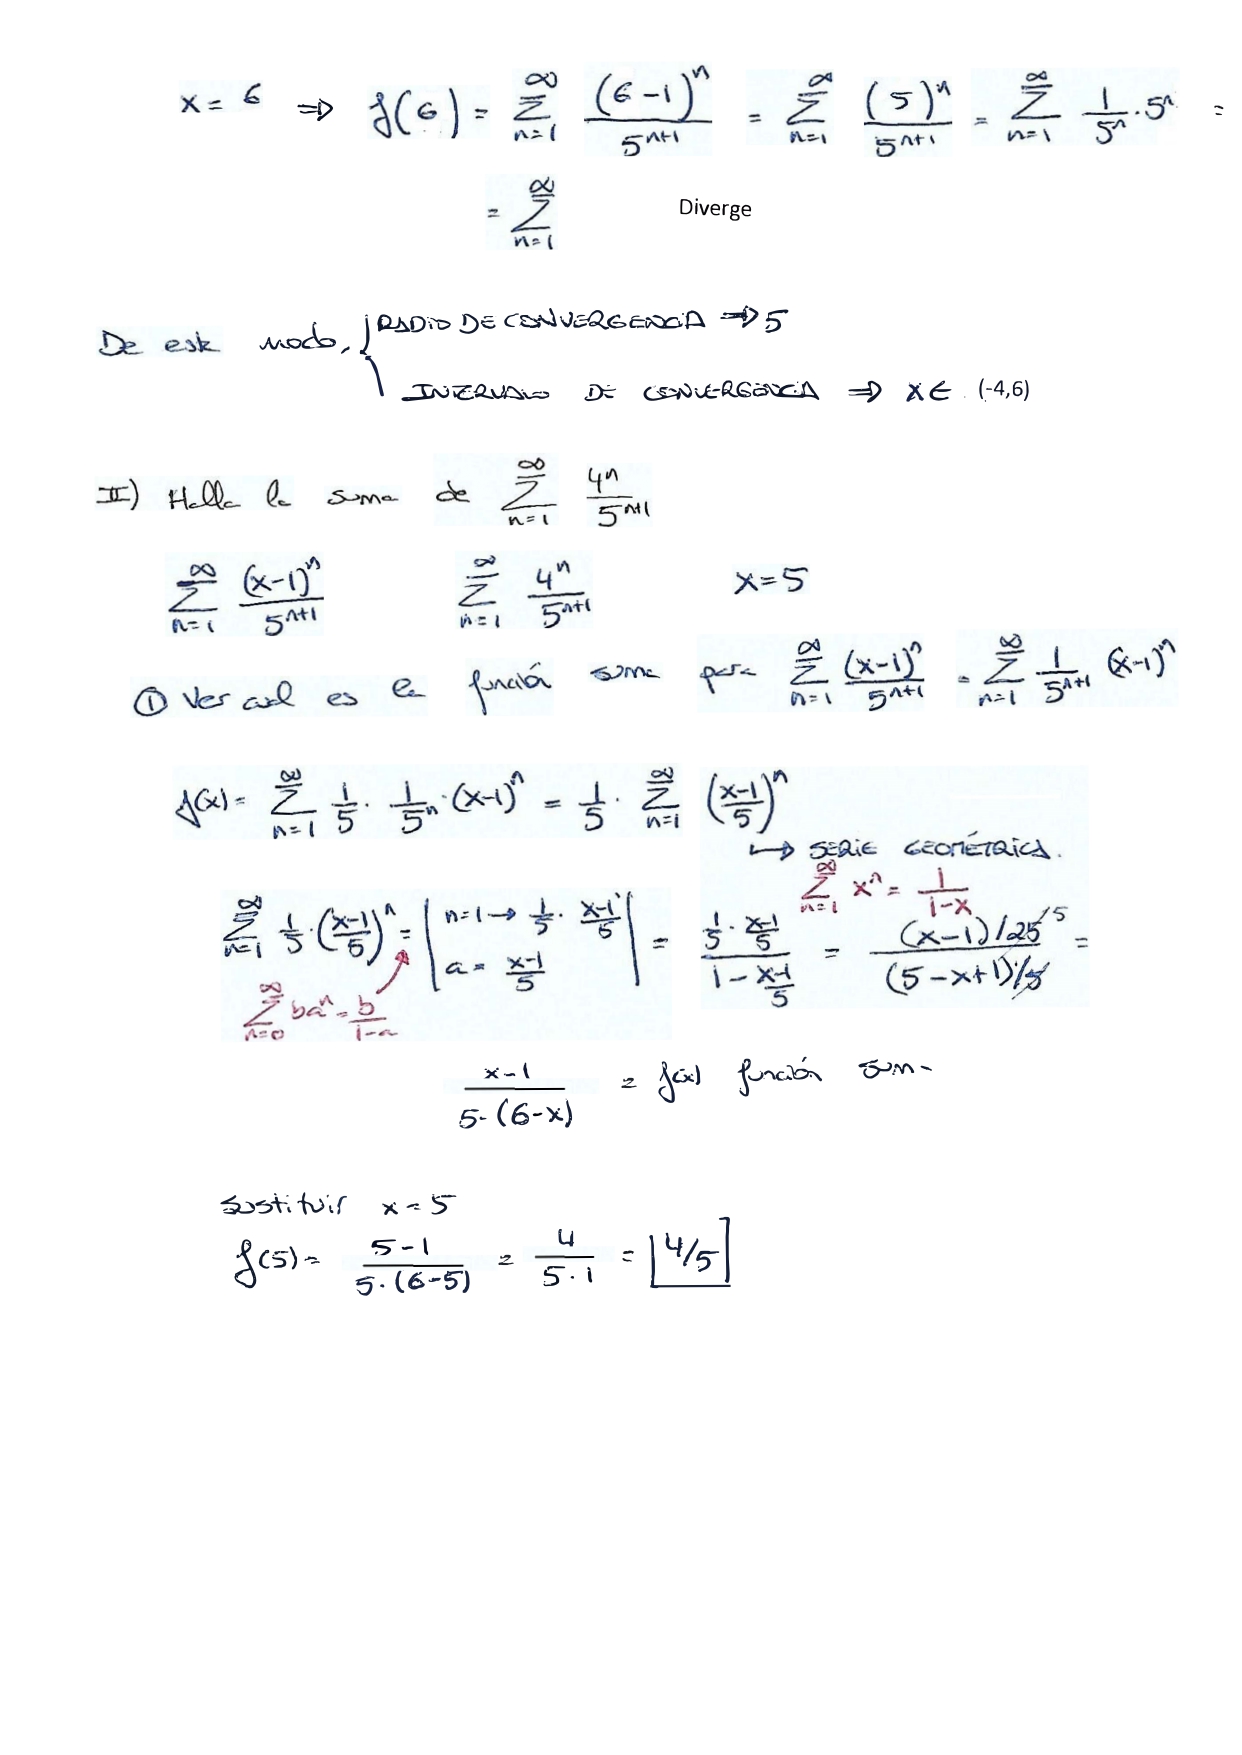 x = 6 ⇒ f(6) = ∑_{n=1}^{∞} (6-1)^n / 5^{n+1} = ∑_{n=1}^{∞} (5)^n / 5^{n+1} = ∑_{n=1}^{∞} 1/5^n · 5^n =
= ∑_{n=1}^{∞} Diverge
De este modo, { RADIO DE CONVERGENCIA ⇒ 5
INTERVALO DE CONVERGENCIA ⇒ x ∈ (-4,6)
II) Halla la suma de ∑_{n=1}^{∞} 4^n / 5^{n+1}
∑_{n=1}^{∞} (x-1)^n / 5^{n+1} ∑_{n=1}^{∞} 4^n / 5^{n+1} x = 5
① Ver cual es la función suma para ∑_{n=1}^{∞} (x-1)^n / 5^{n+1} = ∑_{n=1}^{∞} 1/5^{n+1} (x-1)^n
f(x) = ∑_{n=1}^{∞} 1/5 · 1/5^n · (x-1)^n = 1/5 · ∑_{n=1}^{∞} ((x-1)/5)^n
↳ SERIE GEOMÉTRICA.
∑_{n=1}^{∞} x^n = 1/(1-x)
∑_{n=1}^{∞} 1/5 · ((x-1)/5)^n = | n=1 → 1/5 · (x-1)/5 a = (x-1)/5 | = (1/5 · (x-1)/5) / (1 - (x-1)/5) = ((x-1)/25^{/5}) / ((5-x+1)/5) =
∑_{n=0}^{∞} ba^n = b/(1-a)
(x-1) / (5·(6-x)) = f(x) función suma
sustituir x = 5
f(5) = (5-1) / (5·(6-5)) = 4 / (5·1) = 4/5